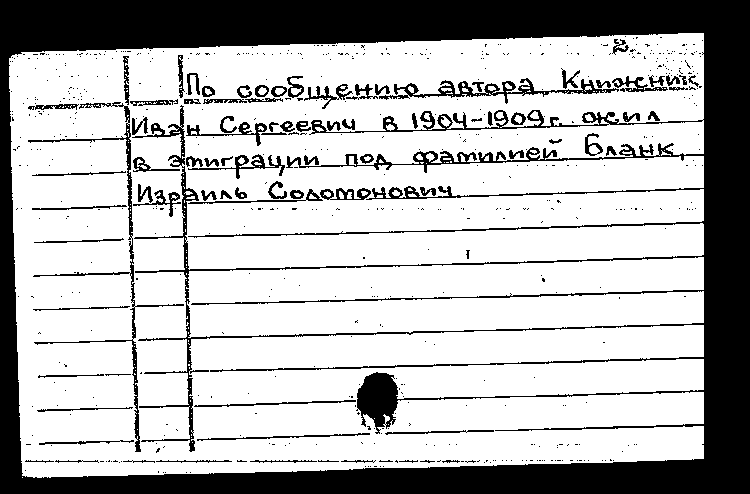 2.
По сообщению автора, Книжник
Иван Сергеевич в 1904-1909г. жил
в эмиграции под фамилией Бланк,
Израиль Соломонович.